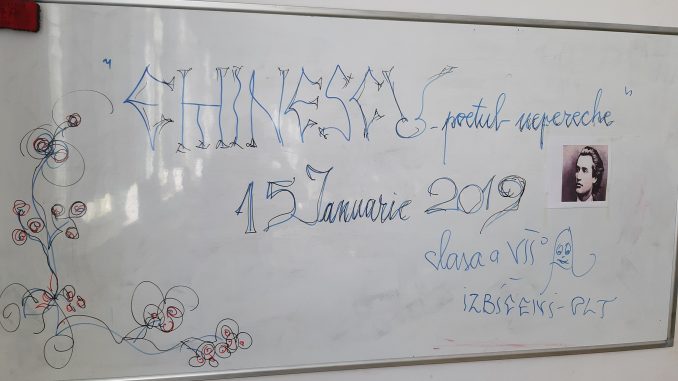 " EMINESCU - poetul nepereche "
15 Ianuarie 2019
clasa a VII° A
IZBICENI - OLT